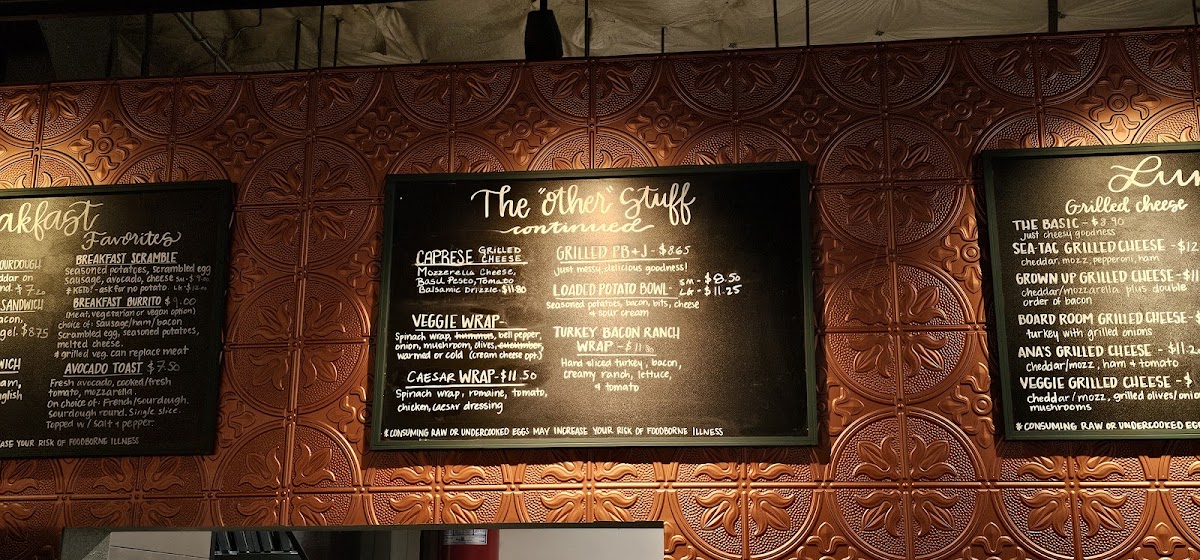 akfast
Favorites
OURDOUGH
ddar on
nd. $7.20
SANDWICH
acon,
gel. $8.75
WICH
am,
nglish
BREAKFAST SCRAMBLE
Seasoned potatoes, scrambled egg
sausage, avocado, cheese
* KETO! - ask for no potato.
BREAKFAST BURRITO $9.00
(meat, vegetarian or vegan option)
choice of: sausage/ham/bacon
Scrambled egg, seasoned potatoes,
melted cheese.
* grilled veg. can replace meat
AVOCADO TOAST $7.50
Fresh avocado, cooked/fresh
tomato, mozzarella.
On choice of: French/sourdough.
Sourdough round. Single slice.
Topped w/ salt & pepper.
EASE YOUR RISK OF FOODBORNE ILLNESS
The "other" Stuff
continued
CAPRESE GRILLED CHEESE
Mozzerella Cheese,
Basil Pesto, Tomato
Balsamic Drizzle. $11.80
VEGGIE WRAP-
Spinach wrap, hummus, bell pepper,
onion, mushroom, olives, cucumber,
warmed or cold (cream cheese opt.)
CAESAR WRAP-$11.50
Spinach wrap, romaine, tomato,
chicken, caesar dressing
GRILLED PB+J - $8.65
just messy, delicious goodness!
LOADED POTATO BOWL- sm - $8.50
LG - $11.25
seasoned potatoes, bacon, bits, cheese
& sour cream
TURKEY BACON RANCH
WRAP - $11.80
Hand sliced turkey, bacon,
creamy ranch, lettuce,
& tomato
* CONSUMING RAW OR UNDERCOOKED EGGS MAY INCREASE YOUR RISK OF FOODBORNE ILLNESS
Lun
Grilled cheese
THE BASIC - $8.90
just cheesy goodness
SEA-TAC GRILLED CHEESE - $12
cheddar, mozz, pepperoni, ham
GROWN UP GRILLED CHEESE - $11
cheddar/mozzarella plus double
order of bacon
BOARD ROOM GRILLED CHEESE - $
turkey with grilled onions
ANA'S GRILLED CHEESE - $11.20
cheddar/mozz, ham & tomato
VEGGIE GRILLED CHEESE - $
cheddar/mozz, grilled olives/onio
mushrooms
* CONSUMING RAW OR UNDERCOOKED EGG